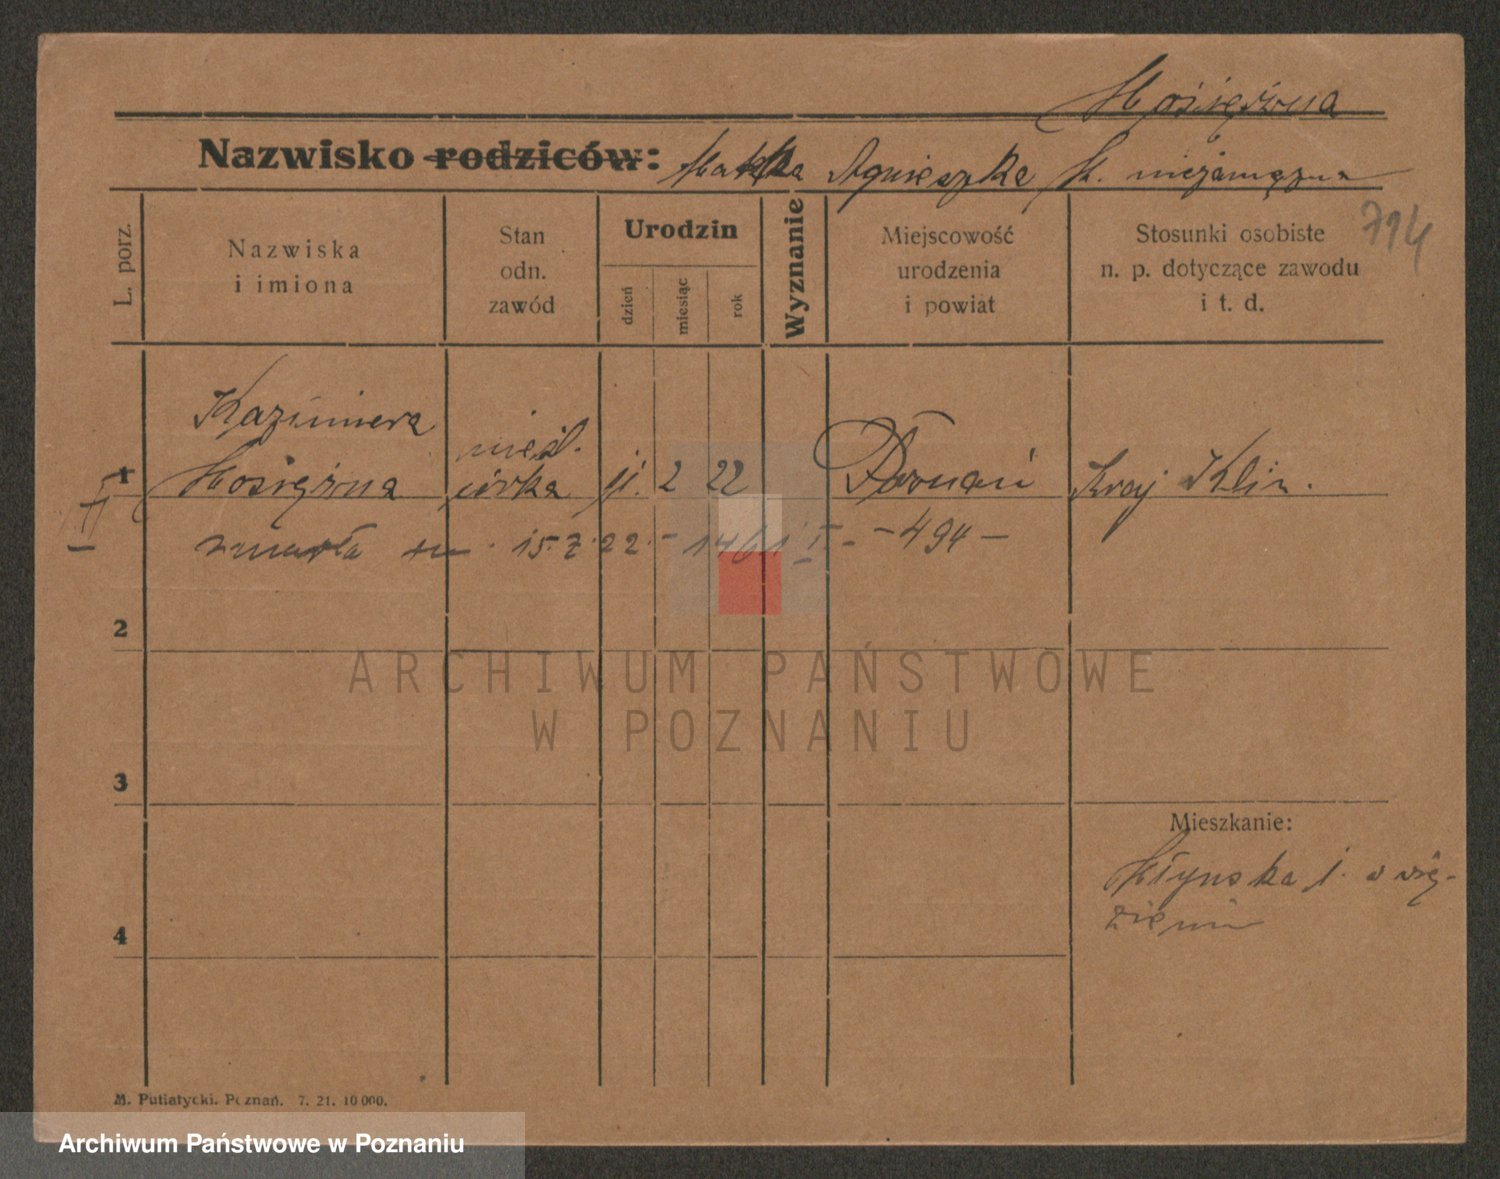 Mosiężna
Nazwisko rodziców: Matka Agnieszka M. niezamężna
714
L. porz.
Nazwiska
i imiona
Stan
odn.
zawód
Urodzin
dzień
miesiąc
rok
Wyznanie
Miejscowość
urodzenia
i powiat
Stosunki osobiste
n. p. dotyczące zawodu
i t. d.
1
Kazimiera
Mosiężna
nieśl.
córka
11. 2 22
Poznań
Kraj Klin.
II
zmarła tu 15.7.22. - 1461 I. - - 494 -
2
3
4
Mieszkanie:
Młyńska 1. w wię-
zieniu
M. Putiatycki. Poznań. 7. 21. 10 000.
ARCHIWUM PAŃSTWOWE
W POZNANIU
Archiwum Państwowe w Poznaniu